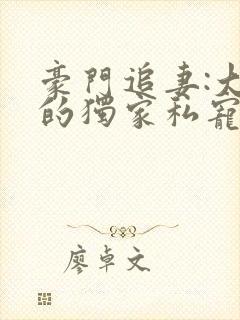 豪門追妻:大
的獨家私寵
廖卓文